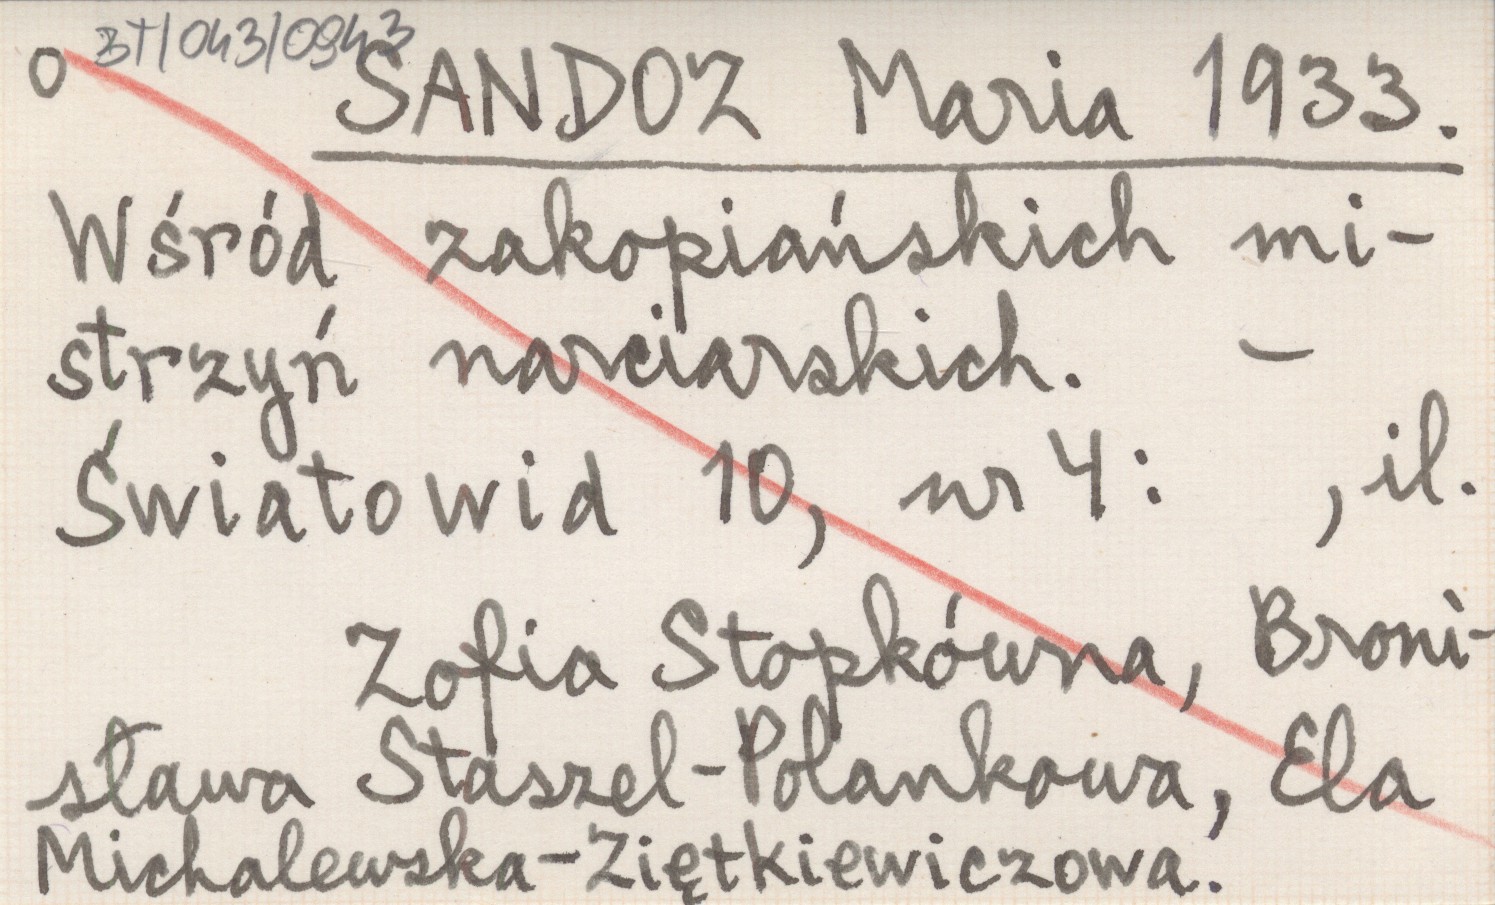 BT/043/0943
O SANDOZ Maria 1933.
Wśród zakopiańskich mi-
strzyń narciarskich. -
Światowid 10, nr 4: , il.
Zofia Stopkówna, Broni-
sława Staszel-Polankowa, Ela
Michalewska-Ziętkiewiczowa.